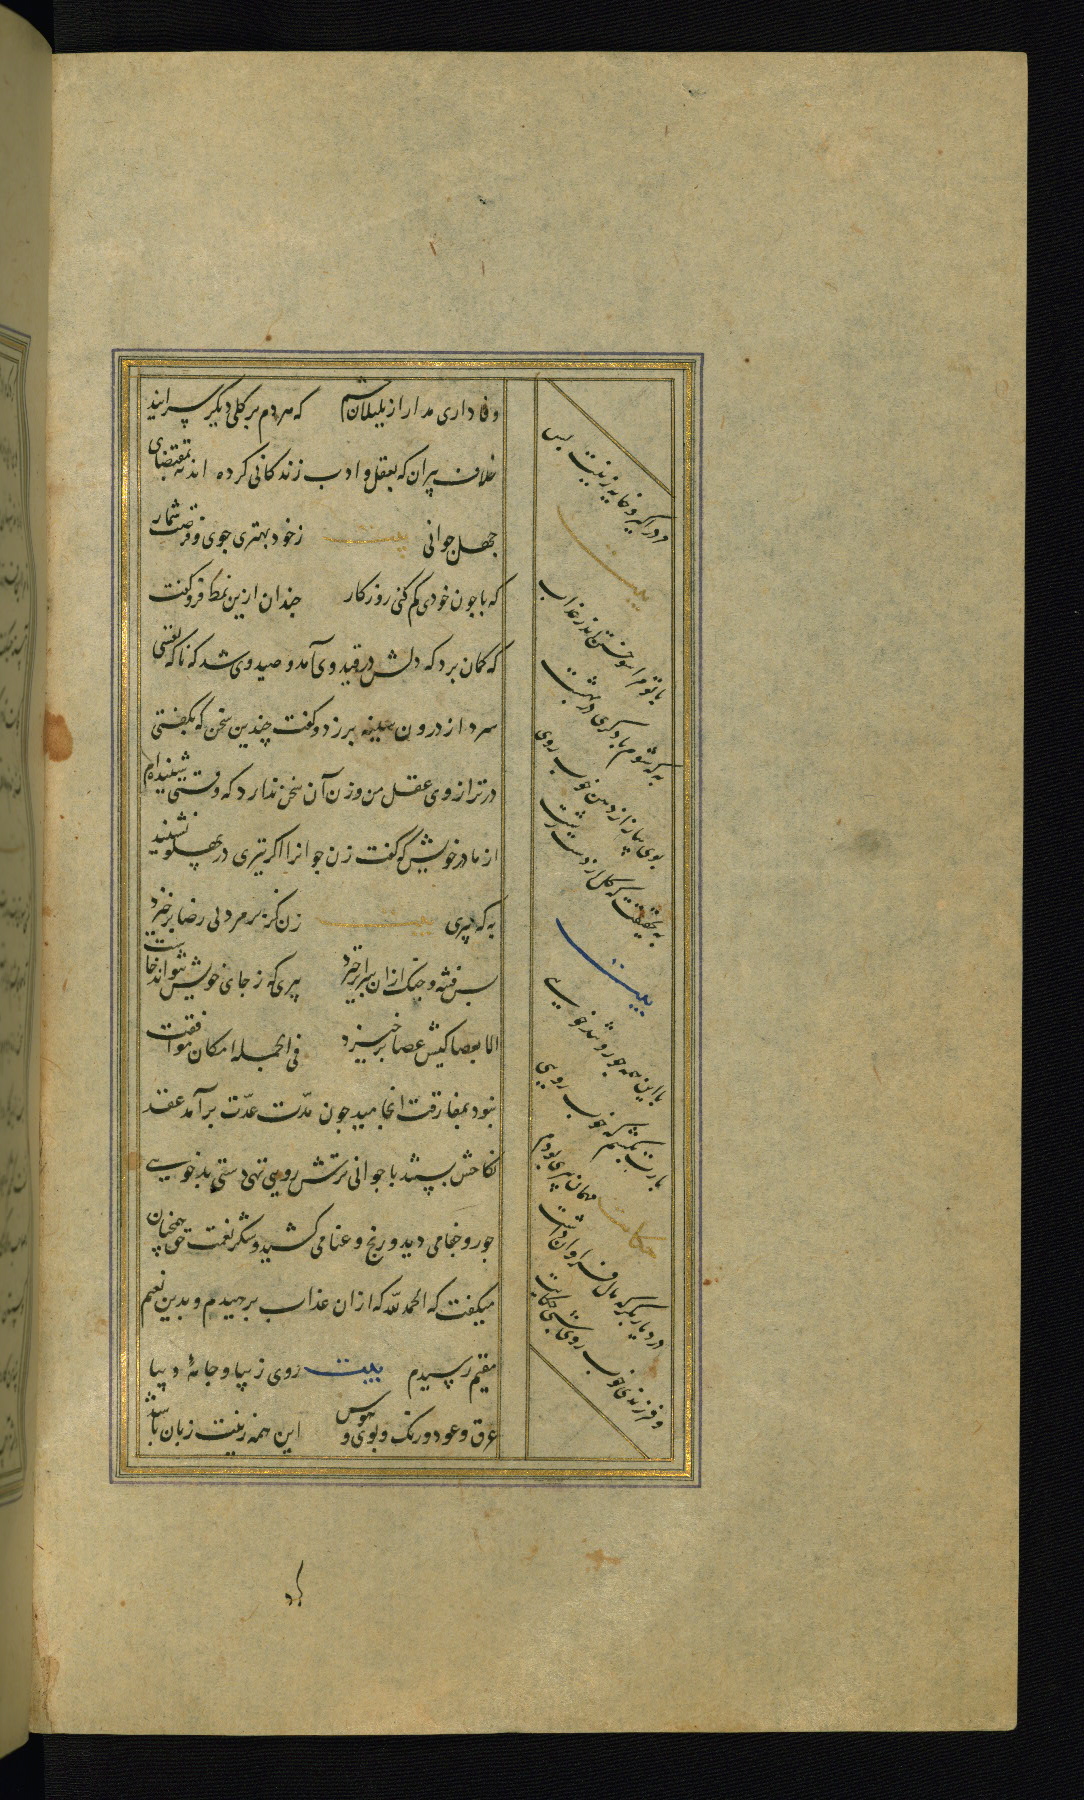 وفاداری مدار از بلبلان چشم که هر دم بر گلی دیگر سرایند
خلاف پیران که بعقل و ادب زندکانی کرده اند نه بمقتضای
جهل جوانی بیت ز خود بهتری جوی و فرصت شمار
که با چون خودی کم کنی روزکار چندان ازین نمط فروکفت
که کمان برد که دلش در قید وی آمد و صید وی شد که ناکه نفسی
سرد از درون سینه برزد و کفت چندین سخن که بکفتی
در ترازوی عقل من وزن آن سخن ندارد که وقتی شنیده‌ام
از مادر خویش که کفت زن جوانرا اکر تیری در پهلو نشیند
به که پیری بیت زن کز بر مرد بی رضا برخیزد
بس فتنه و جنک ازان سرا برخیزد پیری که ز جای خویش نتواند خاست
الا بعصا کیش عصا برخیزد فی الجمله امکان موافقت
نبود بمفارقت انجامید چون مدّت عدّت برآمد عقد
نکاحش بستند با جوانی ترش روی تهی دستی بدخویی
جور و جفا می دید و رنج و عنا می کشید و شکر نعمت حق همچنان
میکفت که الحمد لله که ازان عذاب برهیدم و بدین نعیم
مقیم رسیدم بیت روی زیبا و جامهٔ دیبا
عرق و عود و رنک و بوی و هوس این همه زینت زبان باشد
مرد را کیر و خایه زینت بس
بیت
با تو مرا سوختن اندر عذاب
به که شوم با دکری در بهشت
بوی پیاز از دهن خوب روی
به بحقیقت که کل از دست زشت
بیت
با این همه جور و تندخویی
بارت بکشم که خوب رویی
حکایت مهمان پیری بودم
در دیار بکر که مال فراوان داشت
و فرزندی خوب روی شبی حکایت